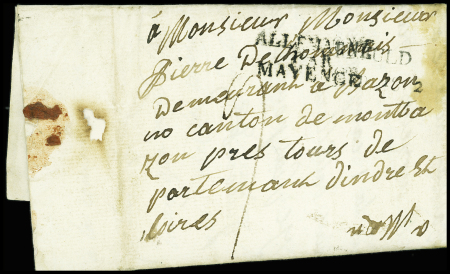 á Monsieur Monsieur
ALLEMAGNE
Pierre De
PAR
MAYENCE
Demeurant a Vazon
no canton de montba
zon pres tours de
partemant dindre Et
loires